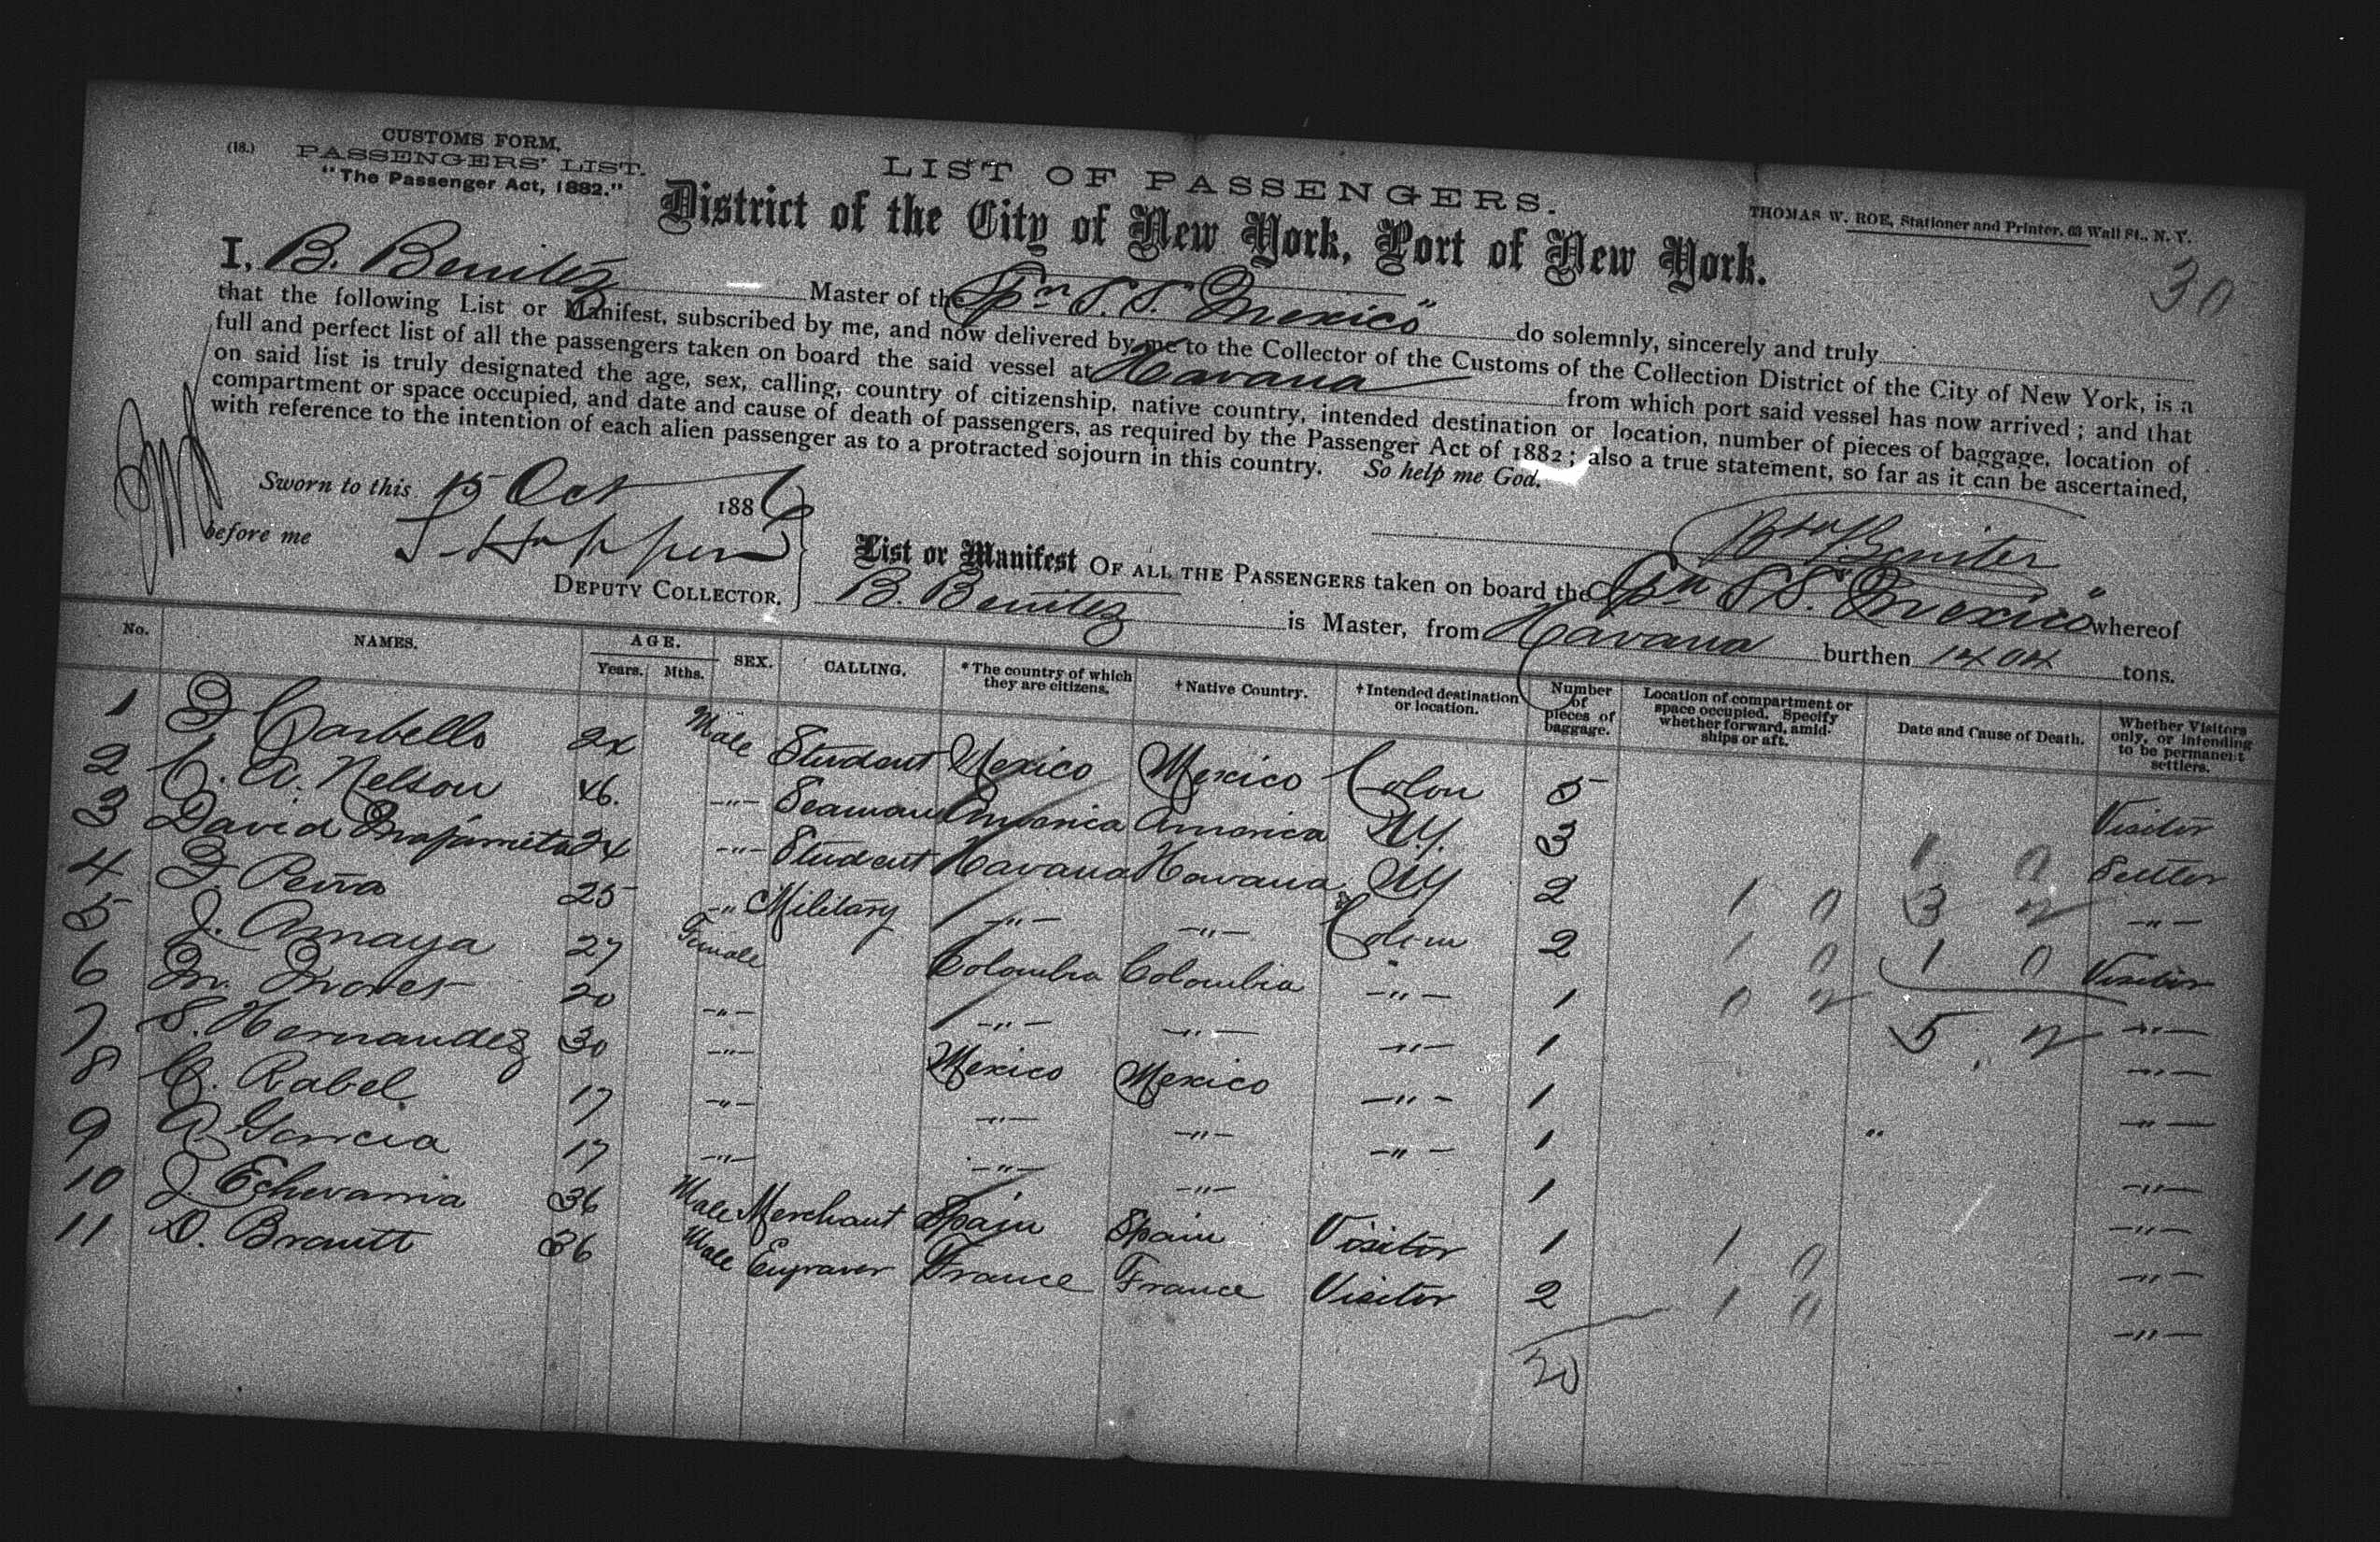 (18.) CUSTOMS FORM,
PASSENGERS' LIST.
"The Passenger Act, 1882."
LIST OF PASSENGERS.
District of the City of New York, Port of New York.
THOMAS W. ROE, Stationer and Printer, 63 Wall St., N. Y.
30
I, B. Benitez Master of the Spn S.S. Mexico" do solemnly, sincerely and truly
that the following List or Manifest, subscribed by me, and now delivered by me to the Collector of the Customs of the Collection District of the City of New York, is a
full and perfect list of all the passengers taken on board the said vessel at Havana from which port said vessel has now arrived; and that
on said list is truly designated the age, sex, calling, country of citizenship, native country, intended destination or location, number of pieces of baggage, location of
compartment or space occupied, and date and cause of death of passengers, as required by the Passenger Act of 1882; also a true statement, so far as it can be ascertained,
with reference to the intention of each alien passenger as to a protracted sojourn in this country. So help me God.
Sworn to this 15 Oct 1886
before me
DEPUTY COLLECTOR.
Benitez
List or Manifest OF ALL THE PASSENGERS taken on board the Spn S.S. Mexico" whereof
B. Benitez is Master, from Havana burthen 1404 tons.
No. NAMES. AGE. Years. Mths. SEX. CALLING. *The country of which they are citizens. †Native Country. †Intended destination or location. Number of pieces of baggage. Location of compartment or space occupied. Specify whether forward, amidships or aft. Date and Cause of Death. Whether Visitors only, or intending to be permanent settlers.
1 Carbello 24 Male Student Mexico Mexico Colon 5 Visitor
2 C. A. Nelson 46. -"- Seaman America America NY. 3 1 0 Settler
3 David 24 -"- Student Havana Havana NY 2 1 0 3 2 -"-
4 Peña 25 -"- Military -"- -"- Colon 2 1 0 1 0 Visitor
5 J. Amaya 27 Female Colombia Colombia -"- 1 0 2 -"-
6 M. 20 -"- -"- -"- -"- 1 5 2 -"-
7 S. Hernandez 30 -"- Mexico Mexico -"- 1 -"-
8 C. Rabel 17 -"- -"- -"- -"- 1 -"-
9 A Garcia 17 -"- -"- -"- 1 -"-
10 J. Echevarria 36 Male Merchant Spain Spain Visitor 1 1 0 -"-
11 D. Brautt 36 Male Engraver France France Visitor 2 1 0 -"-
20